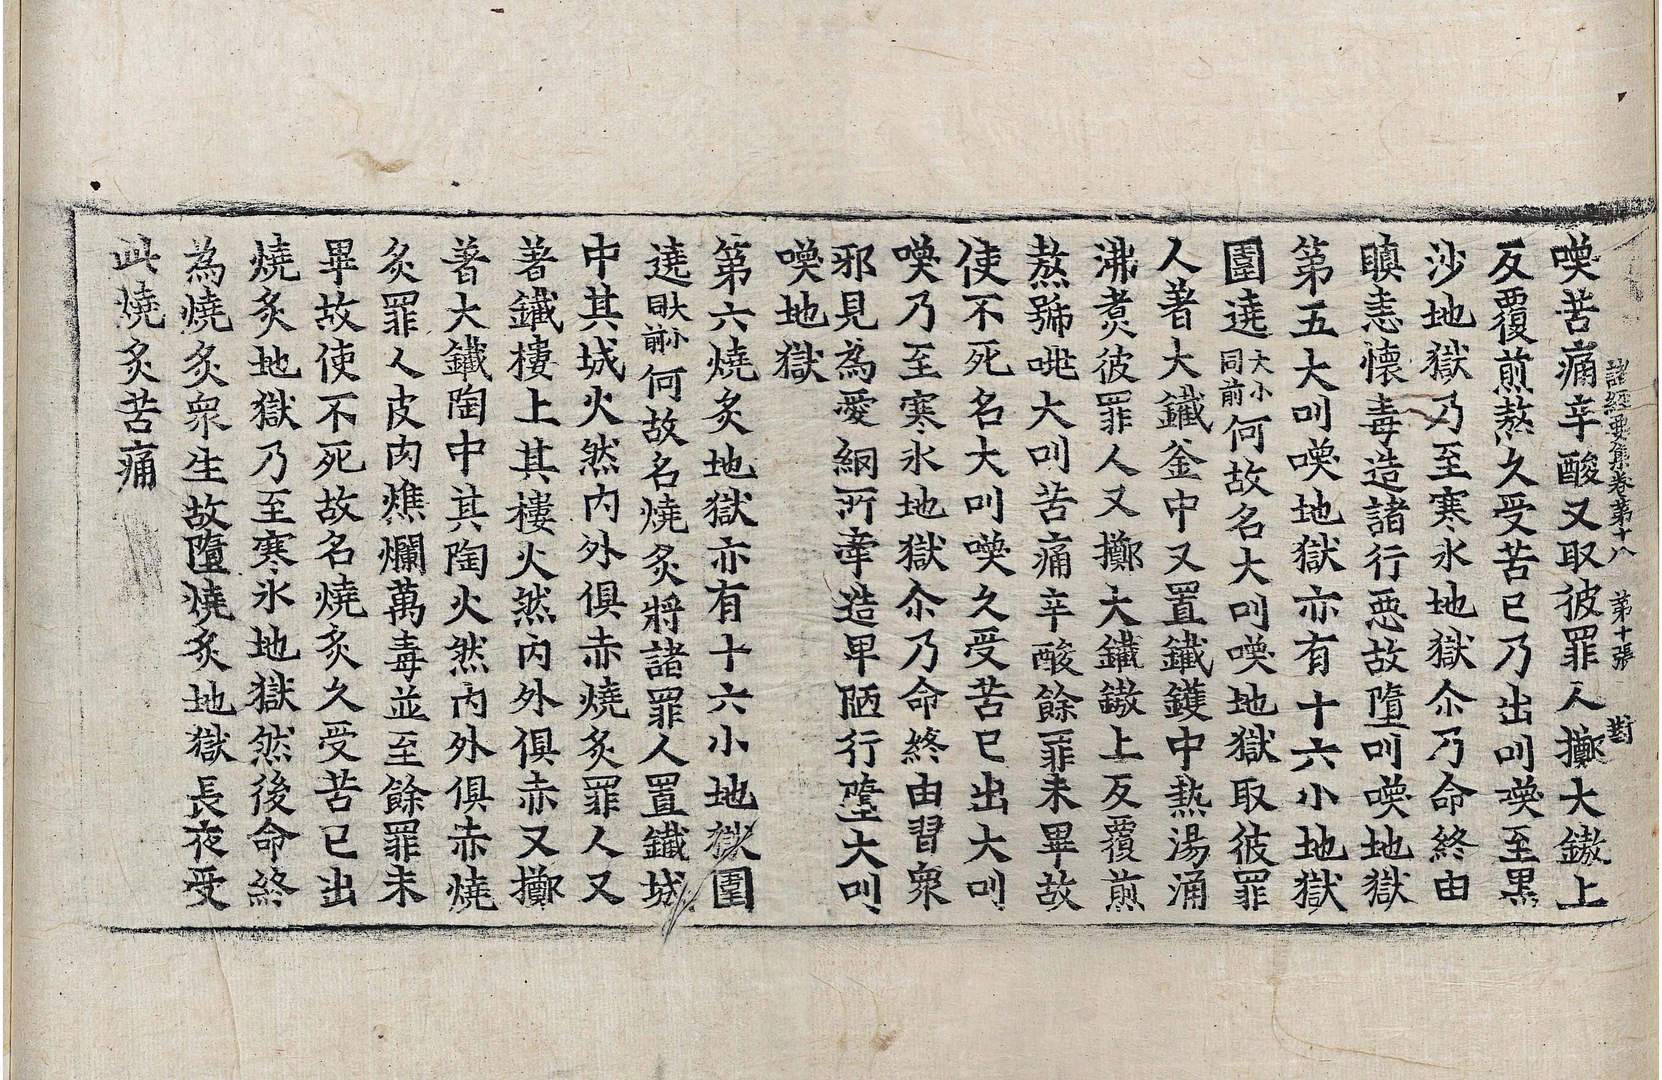 諸經要集卷第十八 第十張 對
喚苦痛辛酸又取彼罪人擲大鏊上
反覆煎熬久受苦已乃出叫喚至黑
沙地獄乃至寒氷地獄尒乃命終由
瞋恚懷毒造諸行惡故墮叫喚地獄
第五大叫喚地獄亦有十六小地獄
圍遶大小同前何故名大叫喚地獄取彼罪
人著大鐵釜中又置鐵鑊中熱湯涌
沸煑彼罪人又擲大鐵鏊上反覆煎
熬號咷大叫苦痛辛酸餘罪未畢故
使不死名大叫喚久受苦已出大叫
喚乃至寒氷地獄尒乃命終由習衆
邪見為愛網所牽造卑陋行墮大叫
喚地獄
第六燒炙地獄亦有十六小地獄圍
遶大小同前何故名燒炙將諸罪人置鐵城
中其城火然內外俱赤燒炙罪人又
著鐵樓上其樓火然內外俱赤又擲
著大鐵陶中其陶火然內外俱赤燒
炙罪人皮肉燋爛萬毒並至餘罪未
畢故使不死故名燒炙久受苦已出
燒炙地獄乃至寒氷地獄然後命終
為燒炙衆生故墮燒炙地獄長夜受
此燒炙苦痛